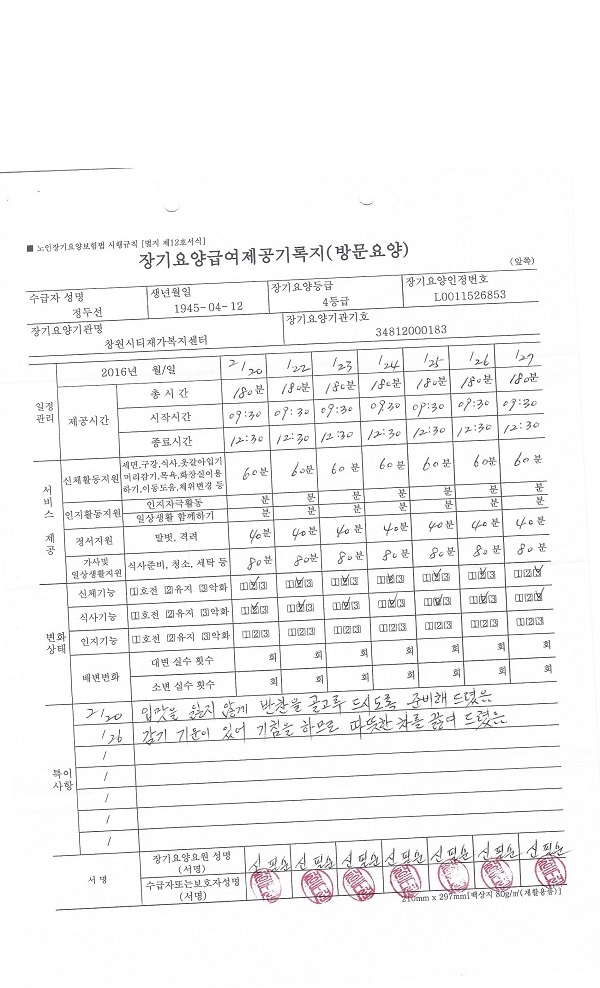 ■ 노인장기요양보험법 시행규칙 [별지 제12호서식]
장기요양급여제공기록지(방문요양)
(앞쪽)
수급자 성명 생년월일 장기요양등급 장기요양인정번호
정두선 1945-04-12 4등급 L0011526853
장기요양기관명 장기요양기관기호
창원시티재가복지센터 34812000183
2016년 월/일 2/20 /22 /23 /24 /25 /26 /27
일정관리 제공시간 총 시 간 180분 180분 180분 180분 180분 180분 180분
시작시간 09:30 09:30 09:30 09:30 09:30 09:30 09:30
종료시간 12:30 12:30 12:30 12:30 12:30 12:30 12:30
서비스 제공
신체활동지원 세면,구강,식사,옷갈아입기 60분 60분 60분 60분 60분 60분 60분
머리감기,목욕,화장실이용
하기,이동도움,체위변경 등
인지활동지원 인지자극활동 분 분 분 분 분 분 분
일상생활 함께하기 분 분 분 분 분 분 분
정서지원 말벗, 격려 40분 40분 40분 40분 40분 40분 40분
가사및 일상생활지원 식사준비, 청소, 세탁 등 80분 80분 80분 80분 80분 80분 80분
변화상태
신체기능 1호전 2유지 3악화 123 123 123 123 123 123 123
식사기능 1호전 2유지 3악화 123 123 123 123 123 123 123
인지기능 1호전 2유지 3악화 123 123 123 123 123 123 123
배변변화 대변 실수 횟수 회 회 회 회 회 회 회
소변 실수 횟수 회 회 회 회 회 회 회
특이사항
2/20 입맛을 잃지 않게 반찬을 골고루 드시도록 준비해 드렸음
/26 감기 기운이 있어 기침을 하므로 따뜻한 차를 끓여 드렸음
/
/
/
/
서 명
장기요양요원 성명 (서명) 신필순 신필순 신필순 신필순 신필순 신필순 신필순
수급자또는보호자성명 (서명)
210mm x 297mm[백상지 80g/㎡(재활용품)]